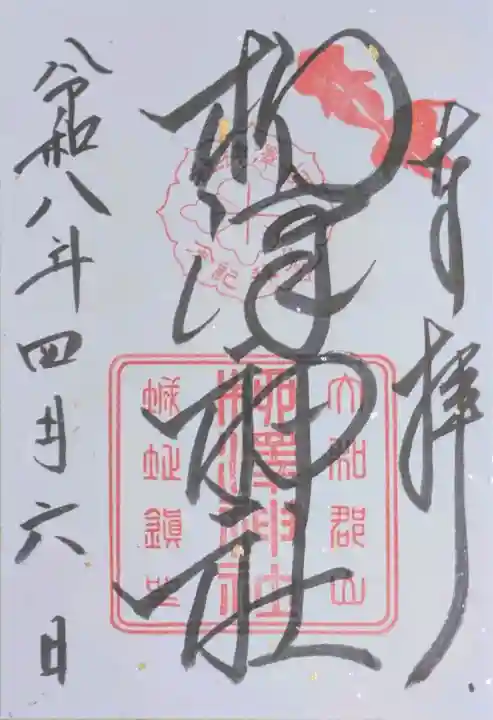 奉拝
柳澤神社
令和八年四月六日
大和郡山
柳澤神社
城址鎮